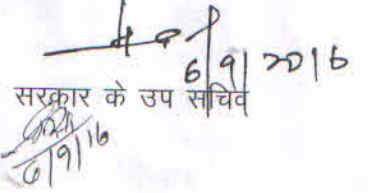 6/9/2016
सरकार के उप सचिव
6/9/16